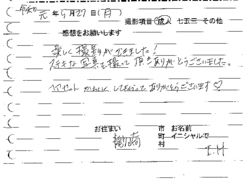 令和 元年5月27日(月)
撮影項目 成人 七五三 その他
感想をお願いします
楽しく撮影ができました!
ステキな写真を撮って頂きありがとうございました。
かわいくしてもらってありがとうございます♡
お住まい 市町村
お名前 イニシャルで
I.H